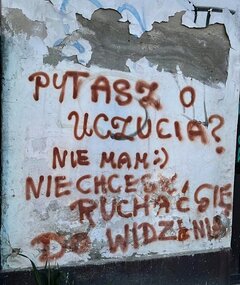 PYTASZ O
UCZUCIA?
NIE MAM:)
NIE CHCESZ
RUCHAĆ SIĘ
DO WIDZENIA